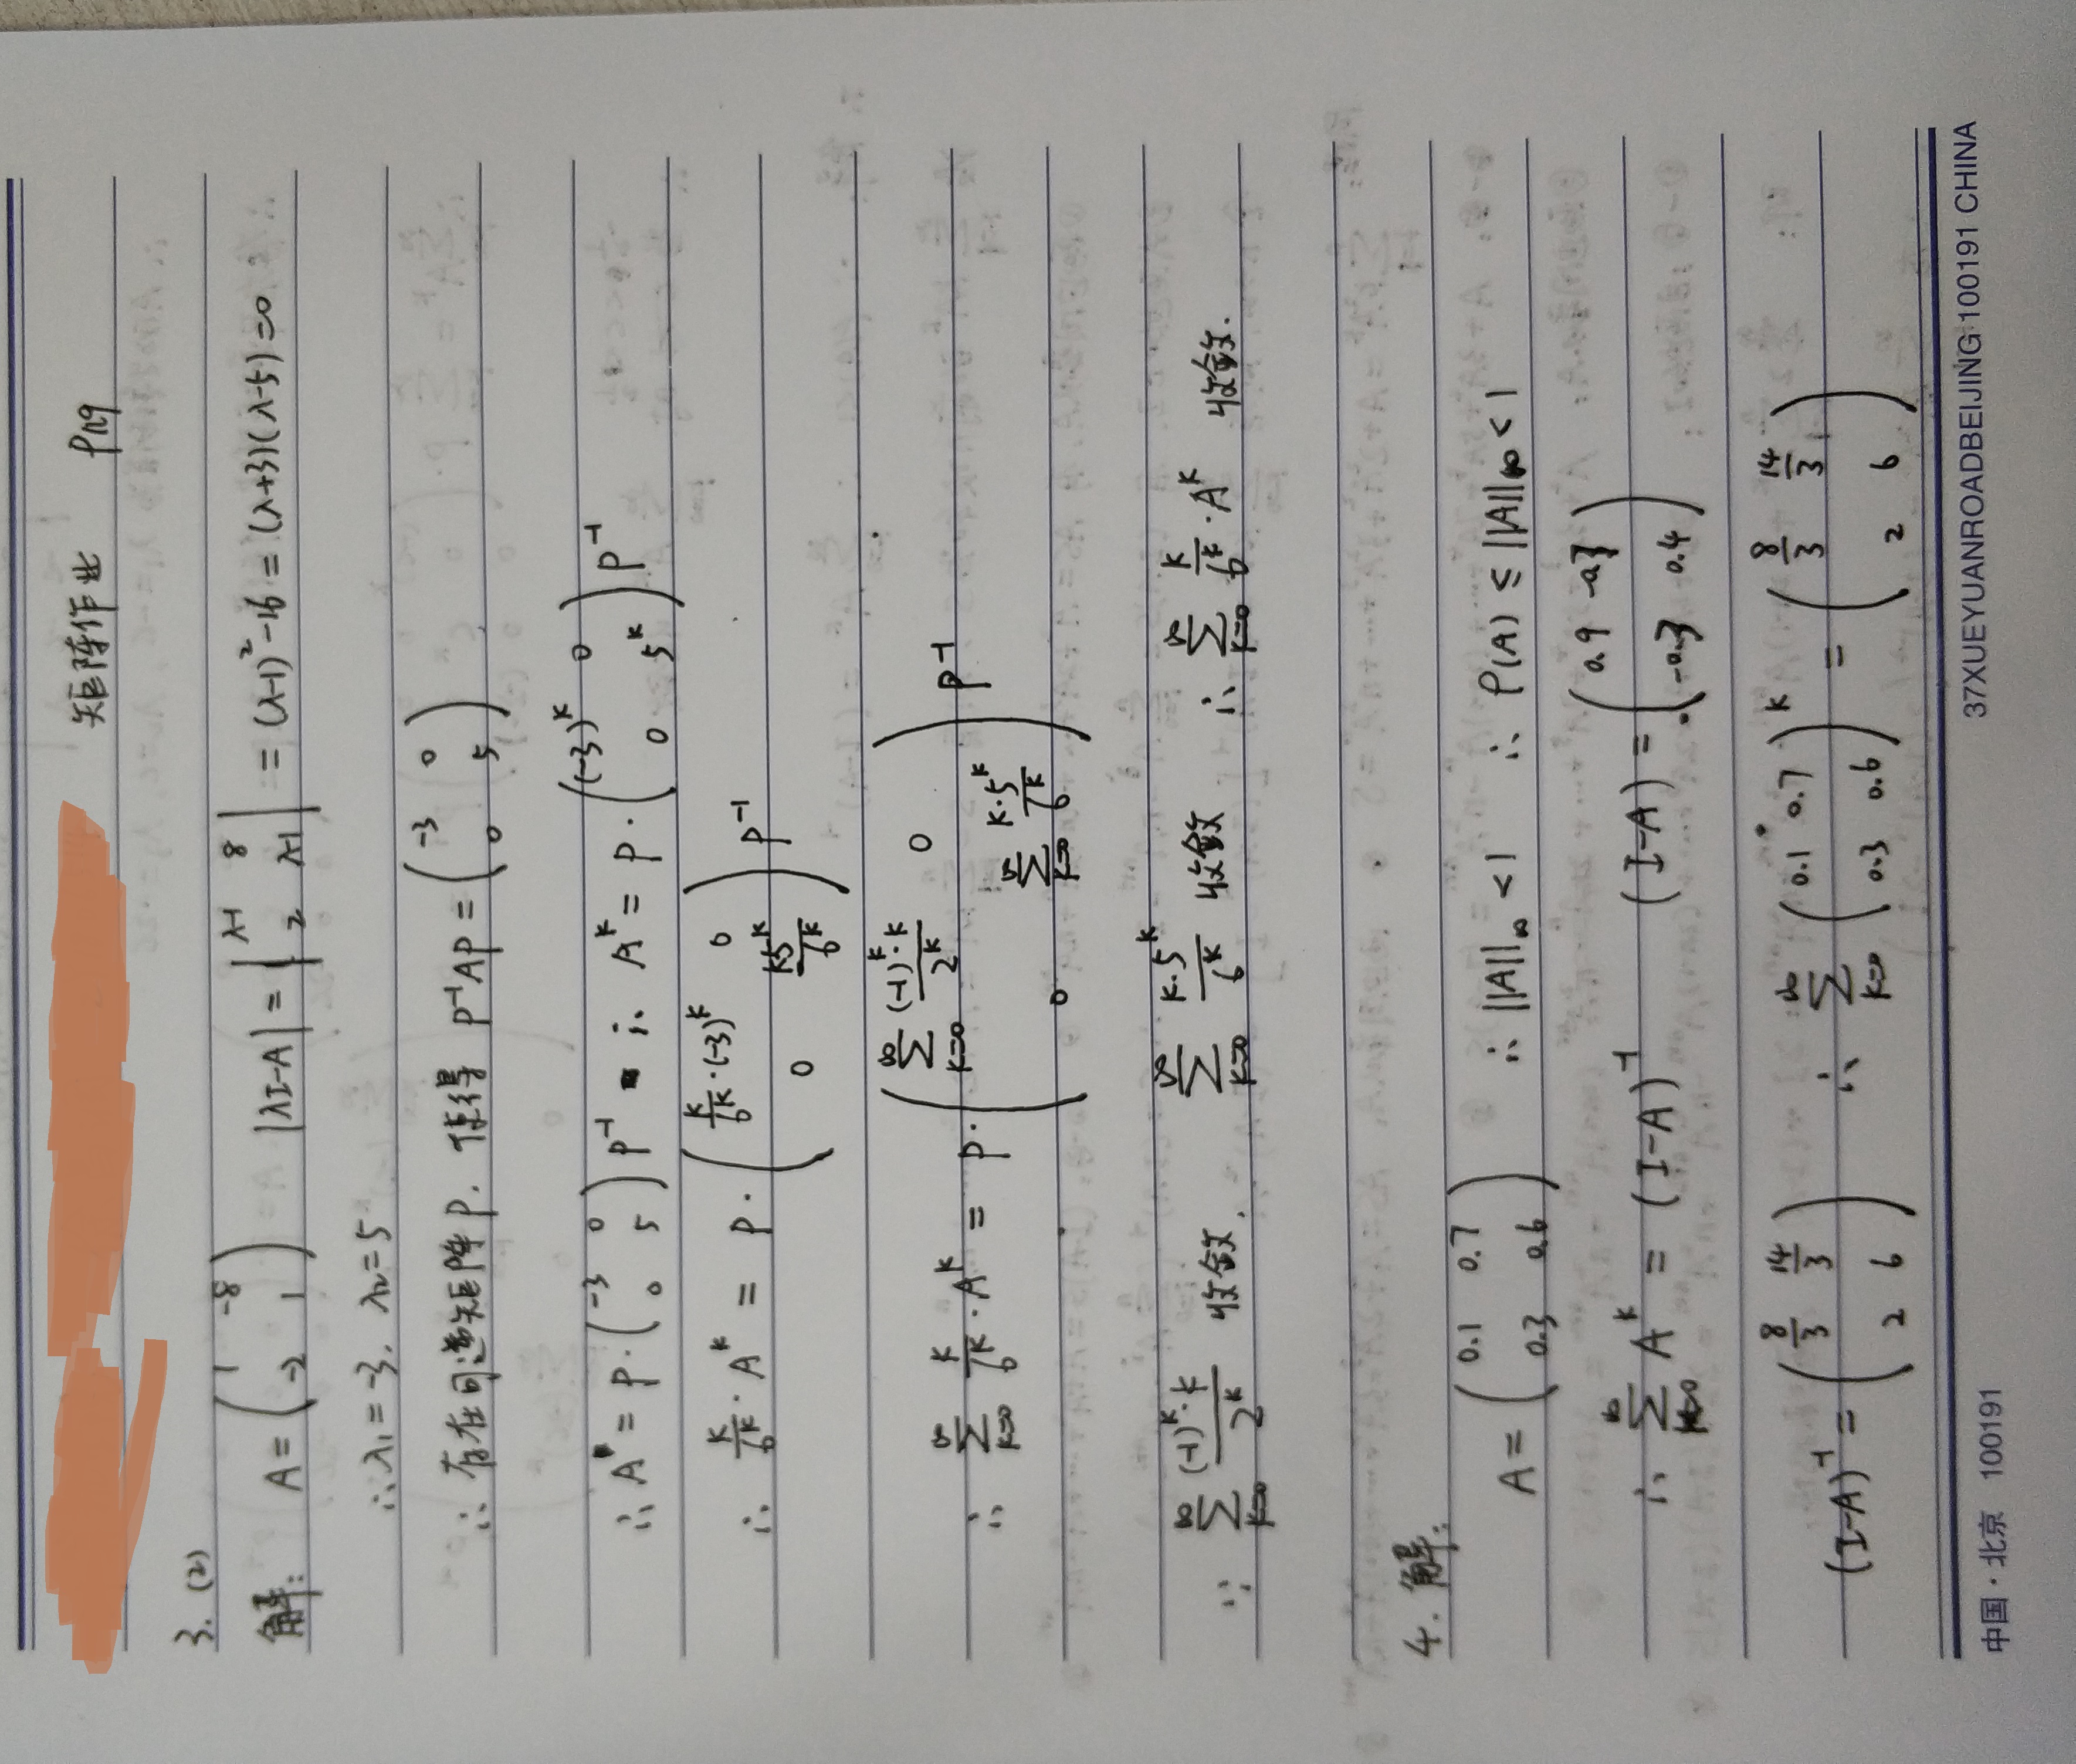 矩阵作业 P119
3. (2)
解: A = ( 1 -8 ; -2 1 ) |λI-A| = | λ-1 8 ; 2 λ-1 | = (λ-1)² -16 = (λ+3)(λ-5) = 0
∴ λ₁ = -3. λ₂ = 5
∴ 存在可逆矩阵P. 使得 P⁻¹AP = ( -3 0 ; 0 5 )
∴ A = P · ( -3 0 ; 0 5 ) P⁻¹ ∴ A^k = P · ( (-3)^k 0 ; 0 5^k ) P⁻¹
∴ k/6^k · A^k = P · ( k/6^k · (-3)^k 0 ; 0 k5^k/6^k ) P⁻¹
∴ ∑_{k=0}^∞ k/6^k · A^k = P · ( ∑_{k=0}^∞ (-1)^k·k/2^k 0 ; 0 ∑_{k=0}^∞ k·5^k/6^k ) P⁻¹
∵ ∑_{k=0}^∞ (-1)^k·k/2^k 收敛. ∑_{k=0}^∞ k·5^k/6^k 收敛 ∴ ∑_{k=0}^∞ k/6^k · A^k 收敛.
4. 解:
A = ( 0.1 0.7 ; 0.3 0.6 ) ∵ ||A||_∞ < 1 ∴ ρ(A) ≤ ||A||_∞ < 1
∴ ∑_{k=0}^∞ A^k = (I-A)⁻¹ (I-A) = ( 0.9 -0.7 ; -0.3 0.4 )
(I-A)⁻¹ = ( 8/3 14/3 ; 2 6 ) ∴ ∑_{k=0}^∞ ( 0.1 0.7 ; 0.3 0.6 )^k = ( 8/3 14/3 ; 2 6 )
中国·北京 100191 37XUEYUANROADBEIJING100191 CHINA